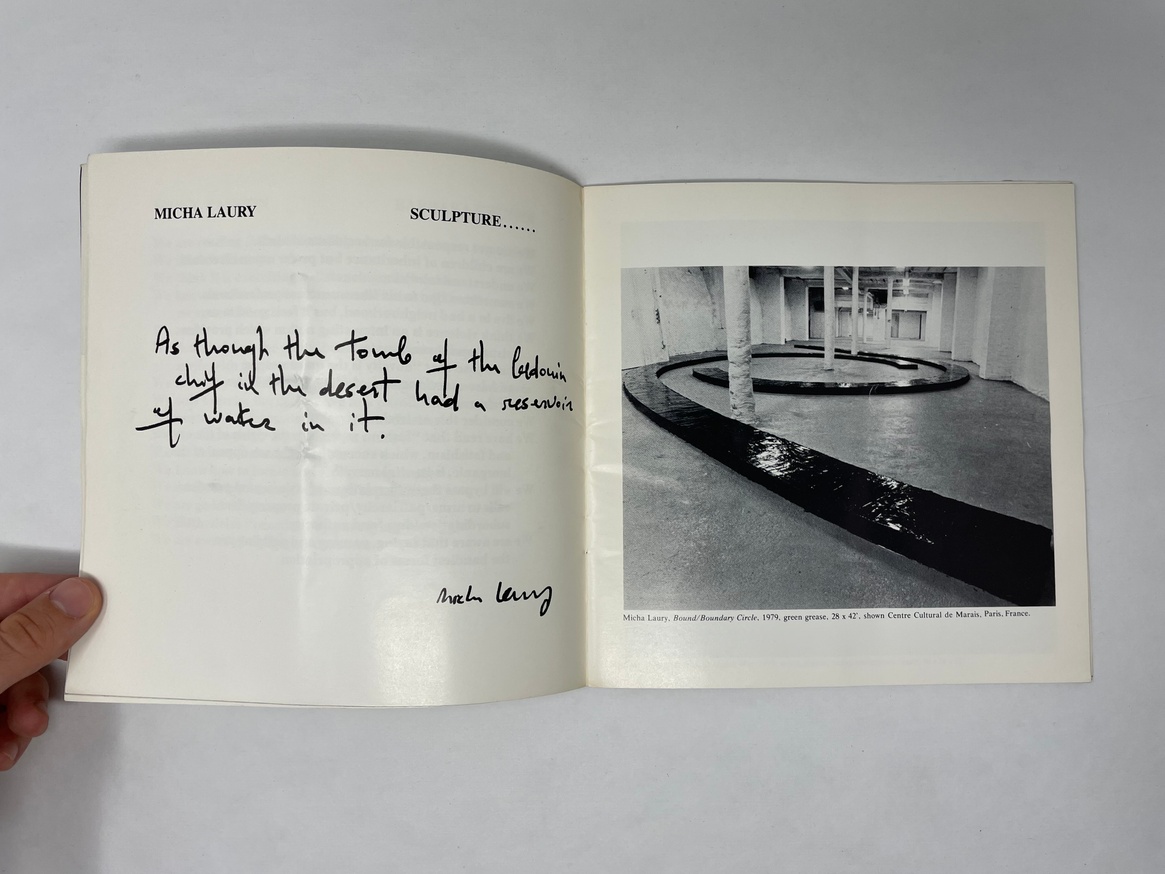 MICHA LAURY SCULPTURE......
As though the tomb of the bedouin
chif in the desert had a reservoir
of water in it.
Micha Laury
Micha Laury, Bound/Boundary Circle, 1979, green grease, 28 x 42', shown Centre Cultural de Marais, Paris, France.